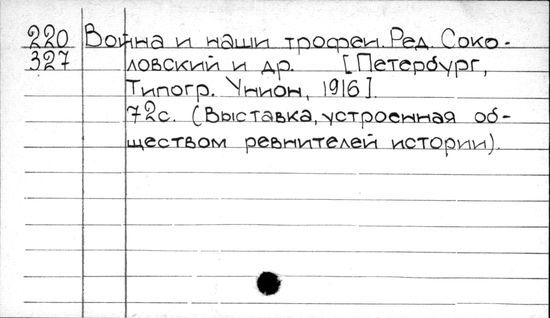 220 Война и наши трофеи. Ред. Соко-
327 ловский и др. [Петербург,
Типогр. Унион, 1916].
72с. (Выставка, устроенная об-
ществом ревнителей истории).